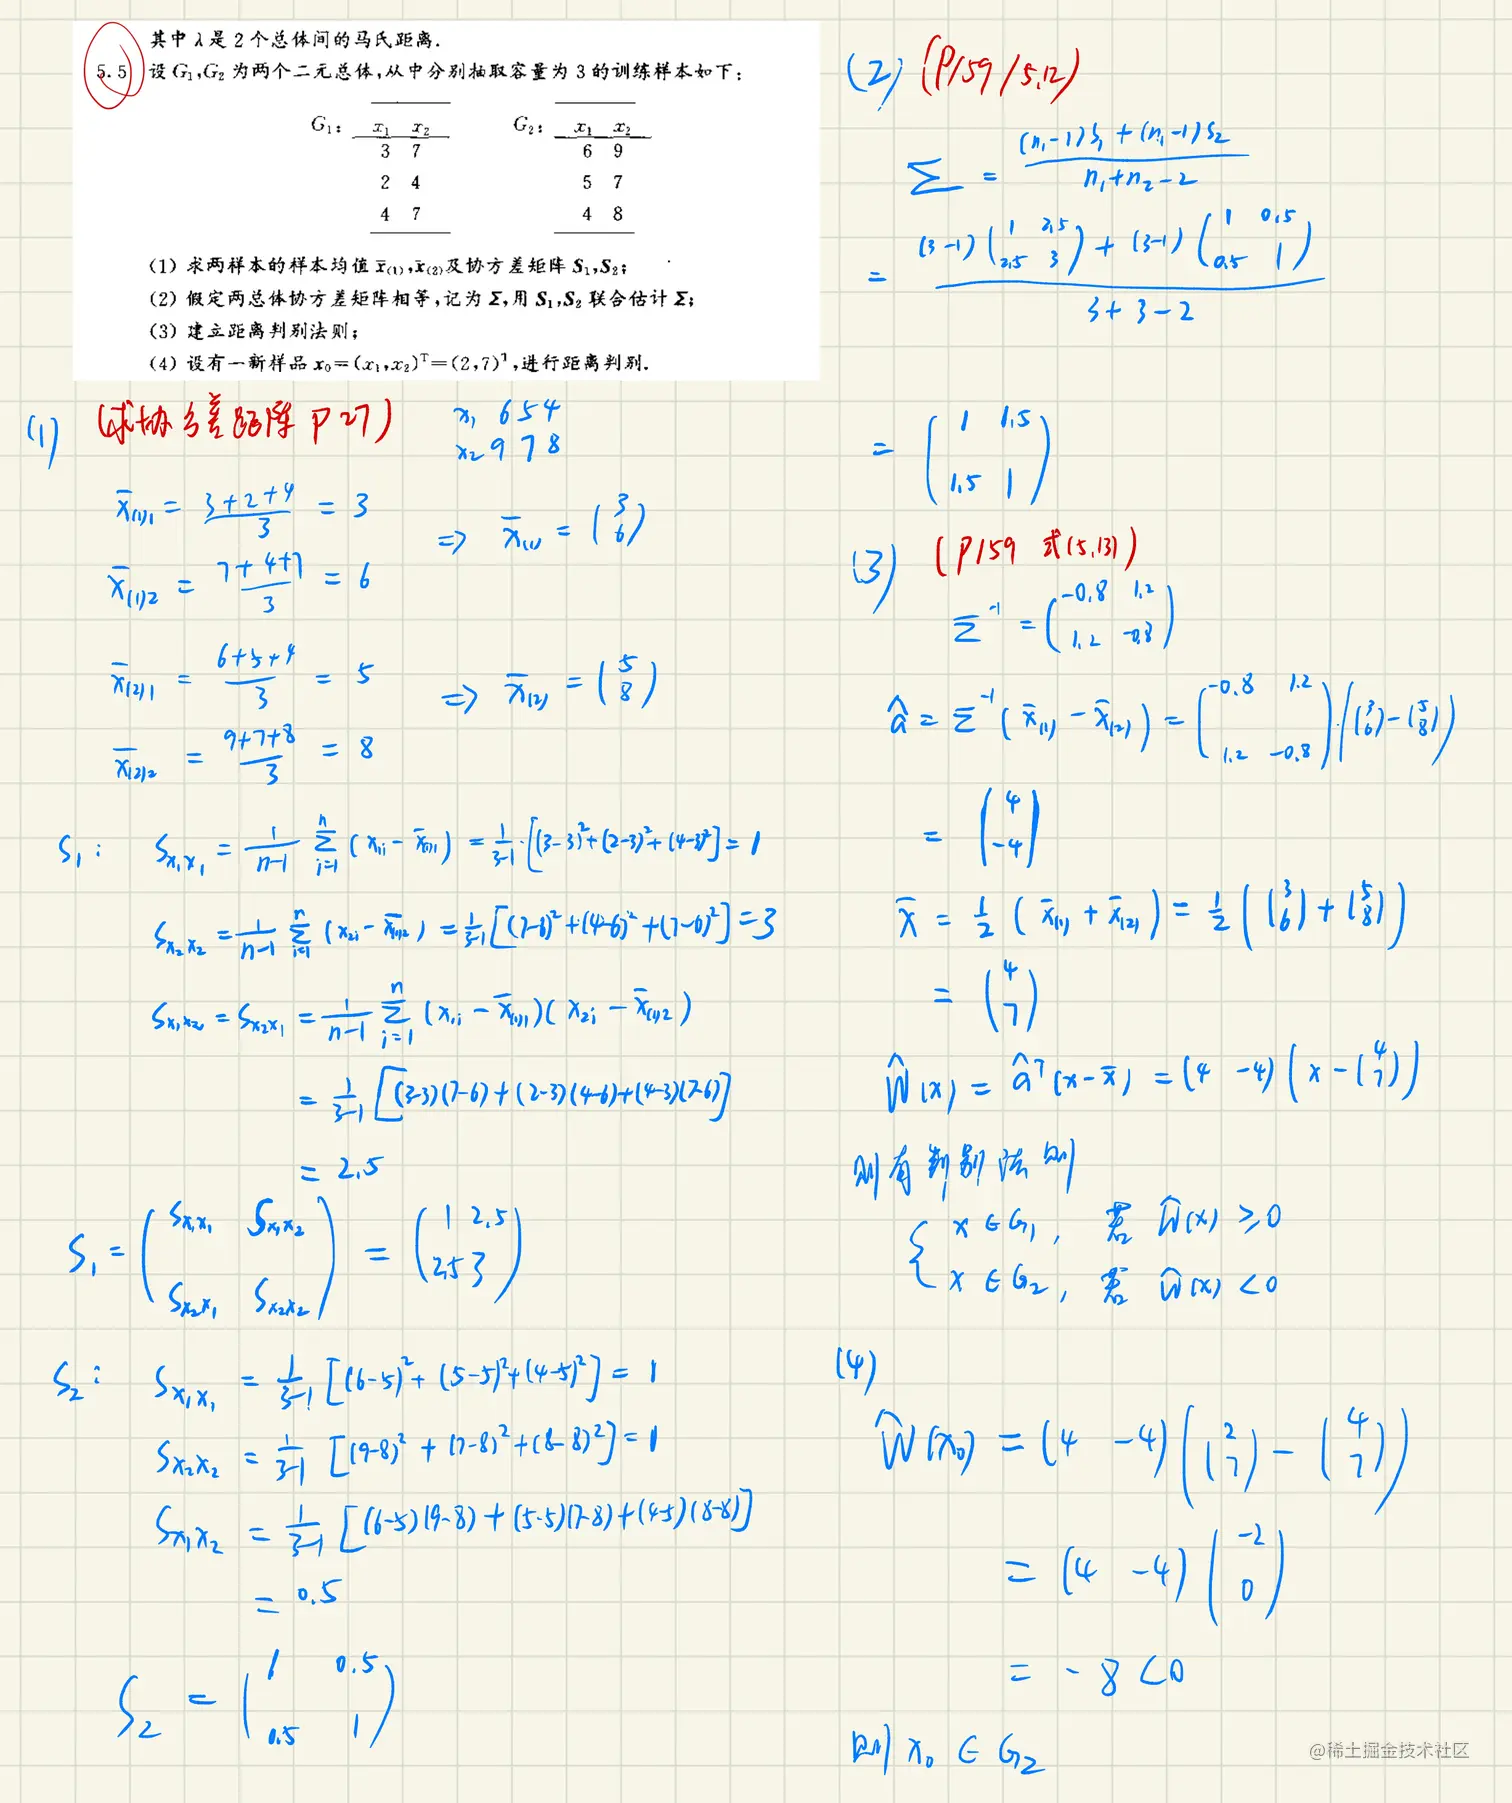 其中 λ 是 2 个总体间的马氏距离.
5.5 设 G₁,G₂ 为两个二元总体,从中分别抽取容量为 3 的训练样本如下:
G₁: x₁ x₂ G₂: x₁ x₂
3 7 6 9
2 4 5 7
4 7 4 8
(1) 求两样本的样本均值 x̄₍₁₎,x̄₍₂₎及协方差矩阵 S₁,S₂;
(2) 假定两总体协方差矩阵相等,记为 Σ,用 S₁,S₂ 联合估计 Σ;
(3) 建立距离判别法则;
(4) 设有一新样品 x₀=(x₁,x₂)ᵀ=(2,7)ᵀ,进行距离判别.
(1) (求协方差矩阵 P27)
x₁ 6 5 4
x₂ 9 7 8
x̄₍₁₎₁ = (3+2+4)/3 = 3
x̄₍₁₎₂ = (7+4+7)/3 = 6
⇒ x̄₍₁₎ = (3 6)
x̄₍₂₎₁ = (6+5+4)/3 = 5
x̄₍₂₎₂ = (9+7+8)/3 = 8
⇒ x̄₍₂₎ = (5 8)
S₁: Sx₁x₁ = 1/(n-1) Σ(i=1..n) (x₁ᵢ - x̄₍₁₎₁) = 1/(3-1)·[(3-3)²+(2-3)²+(4-3)²] = 1
Sx₂x₂ = 1/(n-1) Σ(i=1..n) (x₂ᵢ - x̄₍₁₎₂) = 1/(3-1) [(7-6)²+(4-6)²+(7-6)²] = 3
Sx₁x₂ = Sx₂x₁ = 1/(n-1) Σ(i=1..n) (x₁ᵢ - x̄₍₁₎₁)(x₂ᵢ - x̄₍₁₎₂)
= 1/(3-1) [(3-3)(7-6)+(2-3)(4-6)+(4-3)(7-6)]
= 2.5
S₁ = (Sx₁x₁ Sx₁x₂ Sx₂x₁ Sx₂x₂) = (1 2.5 2.5 3)
S₂: Sx₁x₁ = 1/(3-1) [(6-5)²+(5-5)²+(4-5)²] = 1
Sx₂x₂ = 1/(3-1) [(9-8)²+(7-8)²+(8-8)²] = 1
Sx₁x₂ = 1/(3-1) [(6-5)(9-8)+(5-5)(7-8)+(4-5)(8-8)]
= 0.5
S₂ = (1 0.5 0.5 1)
(2) (P159/5.12)
Σ = ((n₁-1)S₁+(n₁-1)S₂)/(n₁+n₂-2)
= ((3-1)(1 2.5 2.5 3)+(3-1)(1 0.5 0.5 1))/(3+3-2)
= (1 1.5 1.5 1)
(3) (P159 式(5.13))
Σ⁻¹ = (-0.8 1.2 1.2 -0.8)
â = Σ⁻¹(x̄₍₁₎ - x̄₍₂₎) = (-0.8 1.2 1.2 -0.8)·((3 6)-(5 8))
= (4 -4)
x̄ = 1/2 (x̄₍₁₎ + x̄₍₂₎) = 1/2 ((3 6)+(5 8))
= (4 7)
Ŵ(x) = âᵀ(x-x̄) = (4 -4)(x-(4 7))
则有判别法则
{ x ∈ G₁, 若 Ŵ(x) ≥ 0
x ∈ G₂, 若 Ŵ(x) < 0
(4)
Ŵ(x₀) = (4 -4)((2 7)-(4 7))
= (4 -4)(-2 0)
= -8 < 0
则 x₀ ∈ G₂
@稀土掘金技术社区